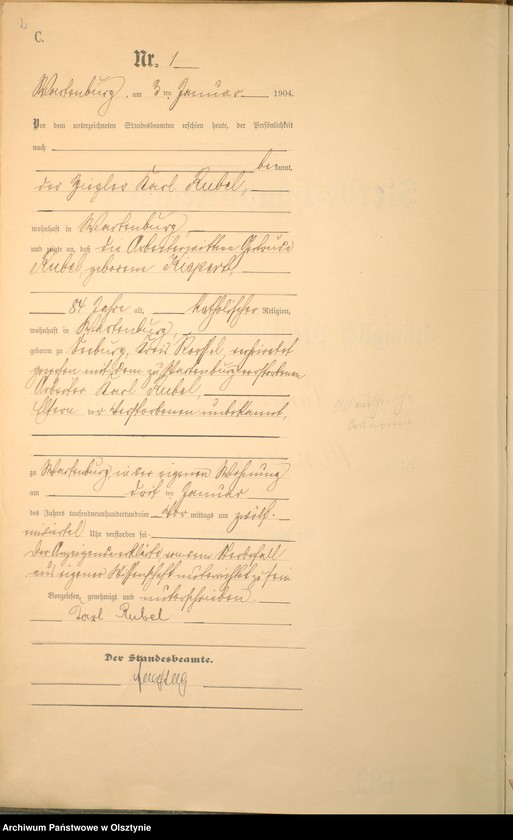 C.
Nr. 1
Wartenburg, am 3ten Januar 1904.
Vor dem unterzeichneten Standesbeamten erschien heute, der Persönlichkeit
nach
bekannt,
der Ziegler Karl Rubel,
wohnhaft in Wartenburg,
und zeigte an, daß die Gertrude
Rubel geborene
84 Jahre alt, katholischer Religion,
wohnhaft in Wartenburg,
geboren zu Seeburg, Kreis Roessel, verheiratet
gewesen mit dem zu Wartenburg verstorbenen
Arbeiter Karl Rubel,
Eltern der Verstorbenen unbekannt,
zu Wartenburg, in der eigenen Wohnung
am drei ten Januar
des Jahres tausendneunhundertundvier Vor mittags um zwölf
Uhr verstorben sei.
Der Anzeigende erklärte von dem Sterbefall
aus eigener Wissenschaft unterrichtet zu sein
Vorgelesen, genehmigt und unterschrieben
Karl Rubel
Der Standesbeamte.
Archiwum Państwowe w Olsztynie